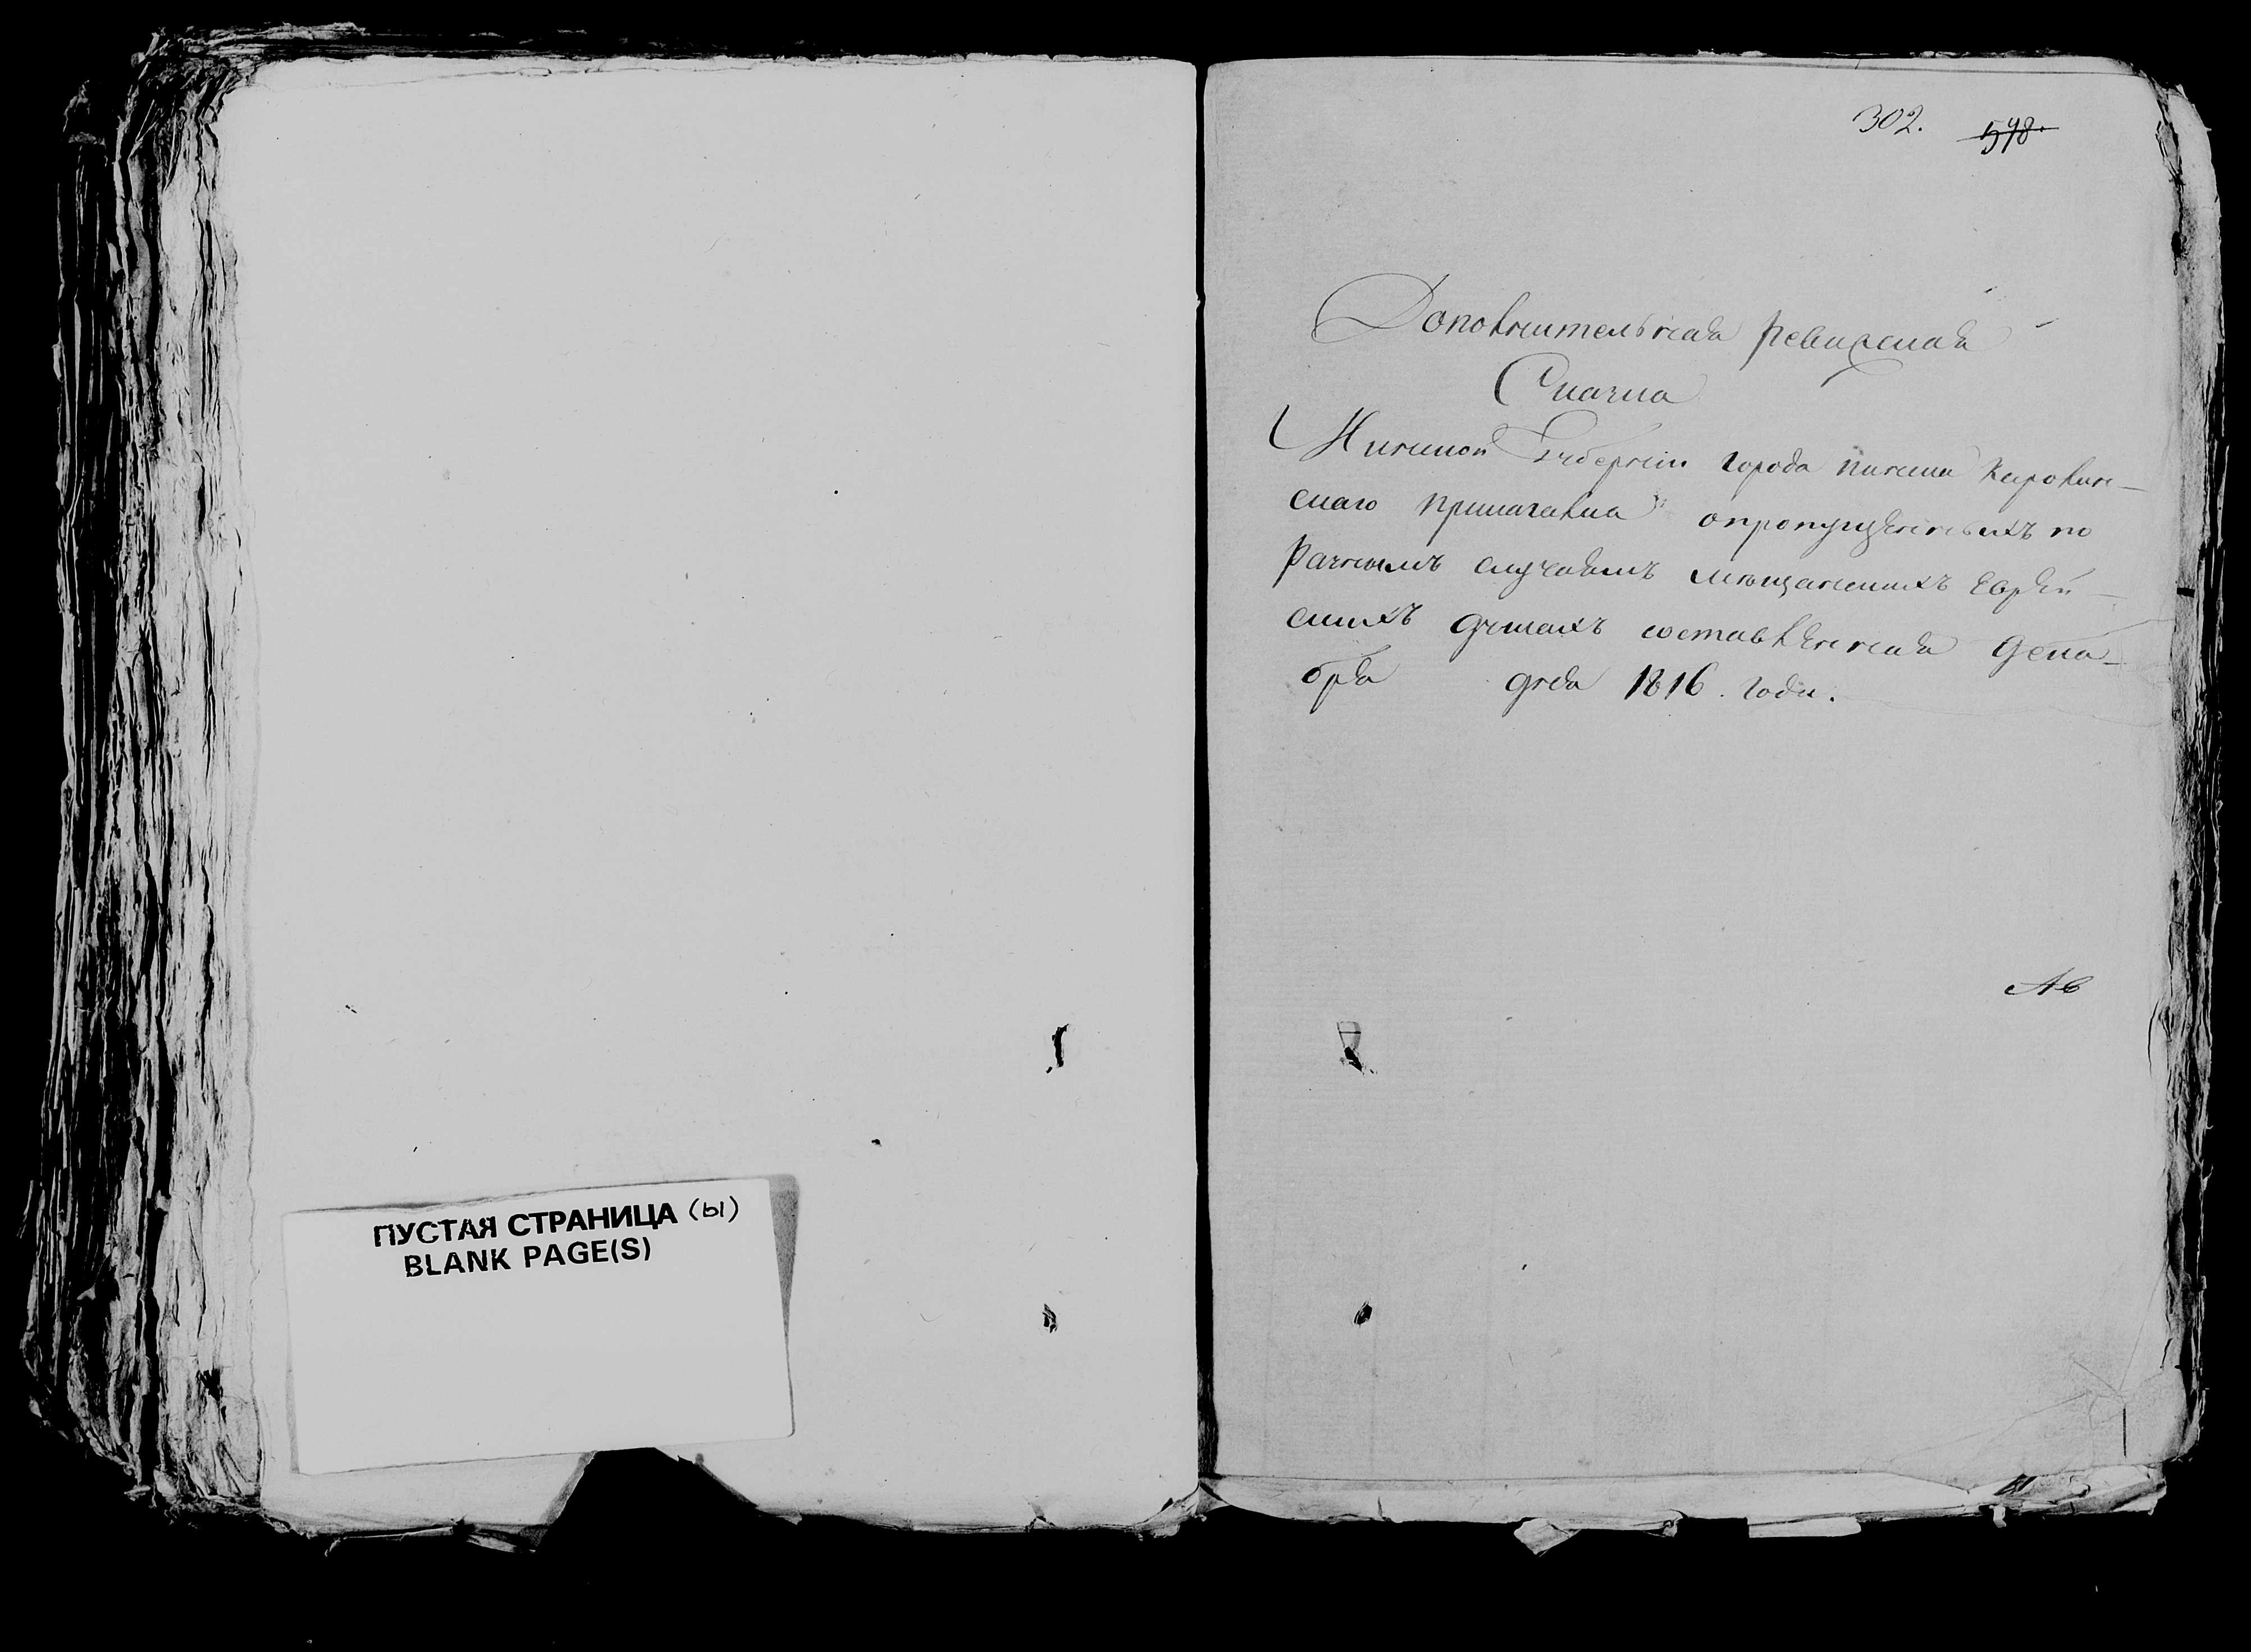 ПУСТАЯ СТРАНИЦА (ы)
BLANK PAGE(S)
302. 598.
Дополнительная ревизская
Скаска
Минской Губернии города Пинска Каролин-
скаго опропущенныхъ по
Разнымъ случаямъ мещанскихъ Еврей-
скихъ душахъ составленная Дека-
бря дня 1816. года.